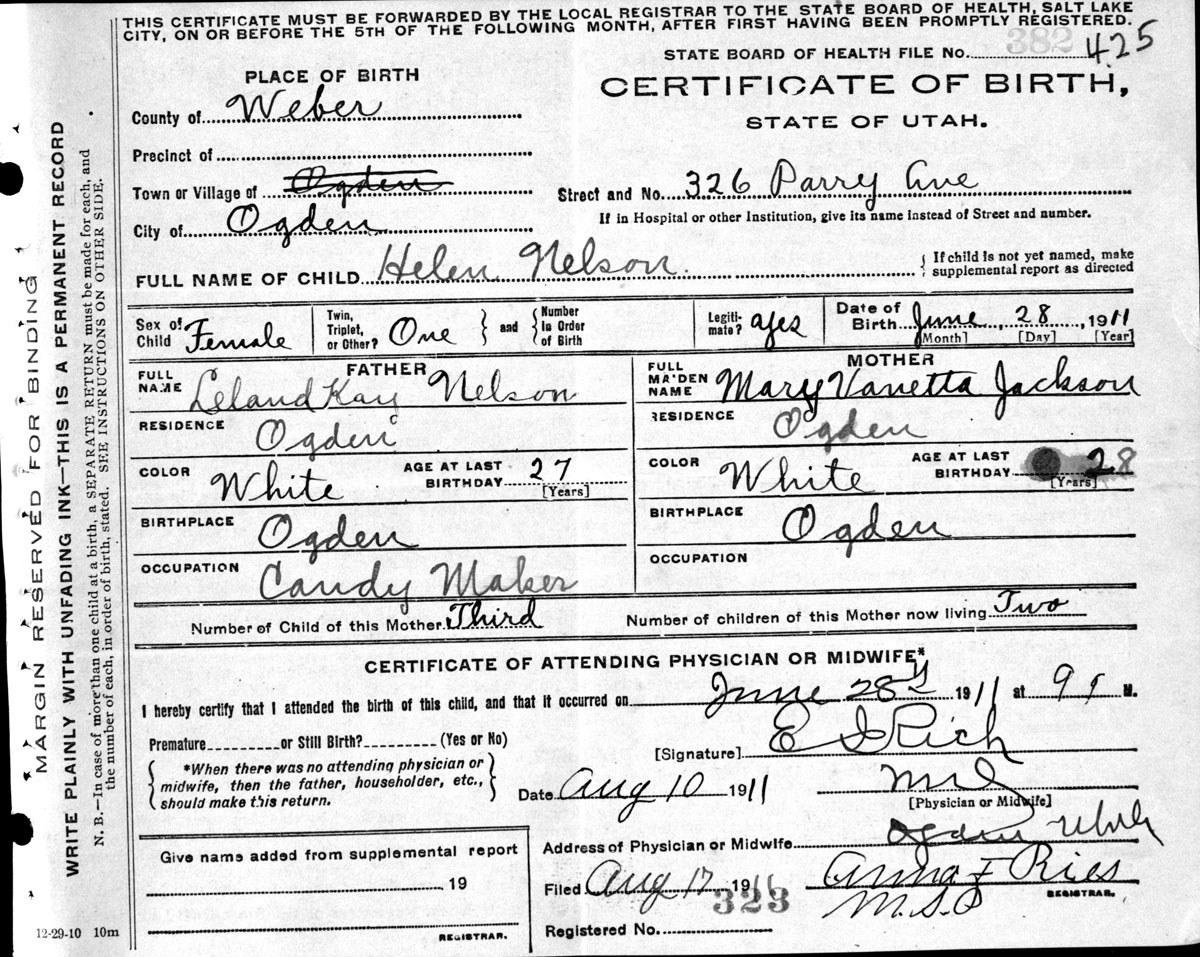 THIS CERTIFICATE MUST BE FORWARDED BY THE LOCAL REGISTRAR TO THE STATE BOARD OF HEALTH, SALT LAKE
CITY, ON OR BEFORE THE 5TH OF THE FOLLOWING MONTH, AFTER FIRST HAVING BEEN PROMPTLY REGISTERED.
382
STATE BOARD OF HEALTH FILE No. 425
PLACE OF BIRTH
CERTIFICATE OF BIRTH,
STATE OF UTAH.
County of Weber
Precinct of
Town or Village of Ogden
Street and No. 326 Parry Ave
City of Ogden
If in Hospital or other Institution, give its name instead of Street and number.
FULL NAME OF CHILD Helen Nelson.
If child is not yet named, make
supplemental report as directed
Sex of Child Female
Twin, Triplet, or Other? One
and
Number In Order of Birth
Legiti-mate? yes
Date of Birth June, 28, 1911
[Month] [Day] [Year]
FATHER
FULL NAME Leland Kay Nelson
RESIDENCE Ogden
COLOR White
AGE AT LAST BIRTHDAY 27
[Years]
BIRTHPLACE Ogden
OCCUPATION Candy Maker
MOTHER
FULL MAIDEN NAME Mary Vanetta Jackson
RESIDENCE Ogden
COLOR White
AGE AT LAST BIRTHDAY 28
[Years]
BIRTHPLACE Ogden
OCCUPATION
Number of Child of this Mother Third
Number of children of this Mother now living Two
CERTIFICATE OF ATTENDING PHYSICIAN OR MIDWIFE*
I hereby certify that I attended the birth of this child, and that it occurred on June 28 1911 at 9 M.
Premature or Still Birth? (Yes or No)
[Signature] E I Rich
*When there was no attending physician or
midwife, then the father, householder, etc.,
should make this return.
Date Aug 10 1911
[Physician or Midwife]
Address of Physician or Midwife Ogden Utah
Give name added from supplemental report
19
REGISTRAR.
Filed Aug 17 1911
323
Anna F Ries
REGISTRAR.
Registered No.
12-29-10 10m
MARGIN RESERVED FOR BINDING
WRITE PLAINLY WITH UNFADING INK—THIS IS A PERMANENT RECORD
N. B.—In case of more than one child at a birth, a SEPARATE RETURN must be made for each, and
the number of each, in order of birth, stated. SEE INSTRUCTIONS ON OTHER SIDE.